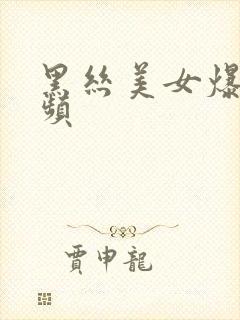 黑丝美女爆
頻
贾申龍